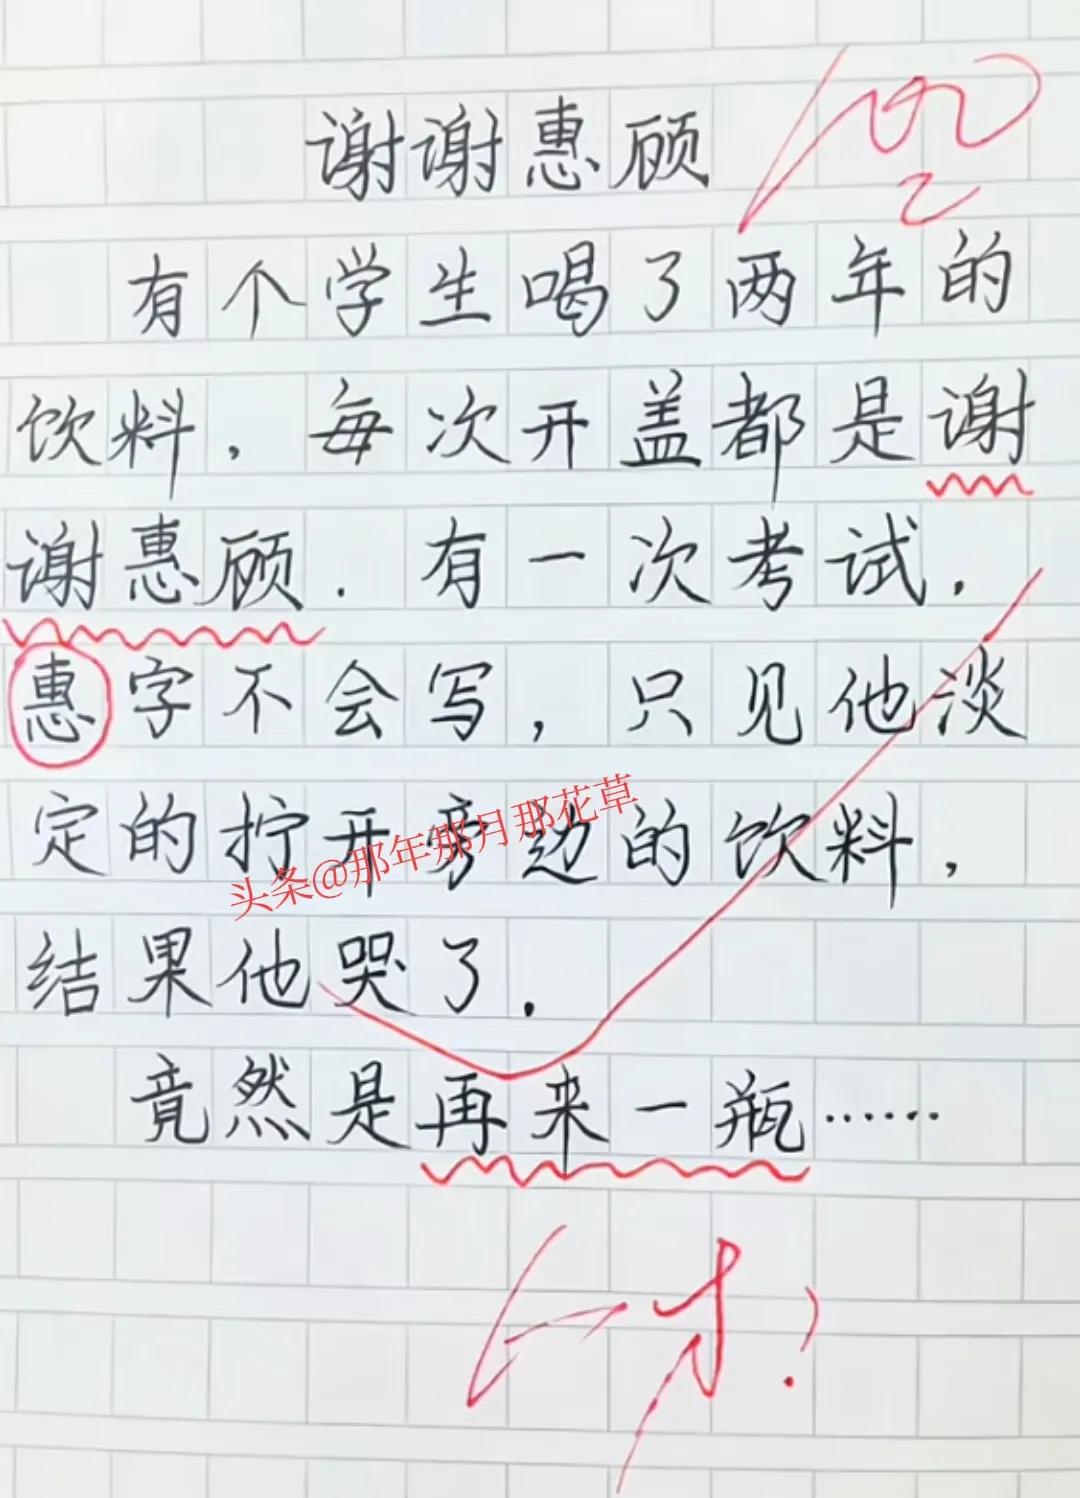 谢谢惠顾
有个学生喝了两年的
饮料，每次开盖都是谢
谢惠顾．有一次考试，
惠字不会写，只见他淡
定的拧开旁边的饮料，
结果他哭了．
竟然是再来一瓶……
头条@那年那月那花草